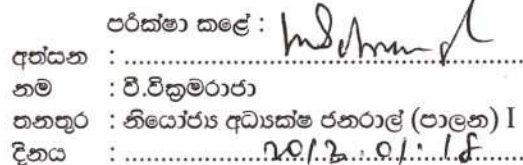 පරික්ෂා කළේ :
අත්සන :
නම : වී.වික්‍රමරාජා
තනතුර : නියෝජ්‍ය අධ්‍යක්ෂ ජනරාල් (පාලන) I
දිනය :